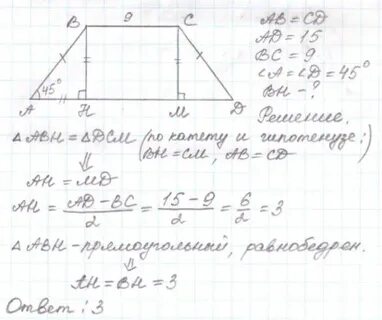 B 9 C
A 45° H M D
AB = CD
AD = 15
BC = 9
∠A = ∠D = 45°
BH - ?
Решение.
△ABH = △DCM (по катету и гипотенузе:)
(BH = CM, AB = CD
⇓
AH = MD
AH = (AD - BC)/2 = (15 - 9)/2 = 6/2 = 3
△ABH - прямоугольный, равнобедрен.
⇓
AH = BH = 3
Ответ: 3